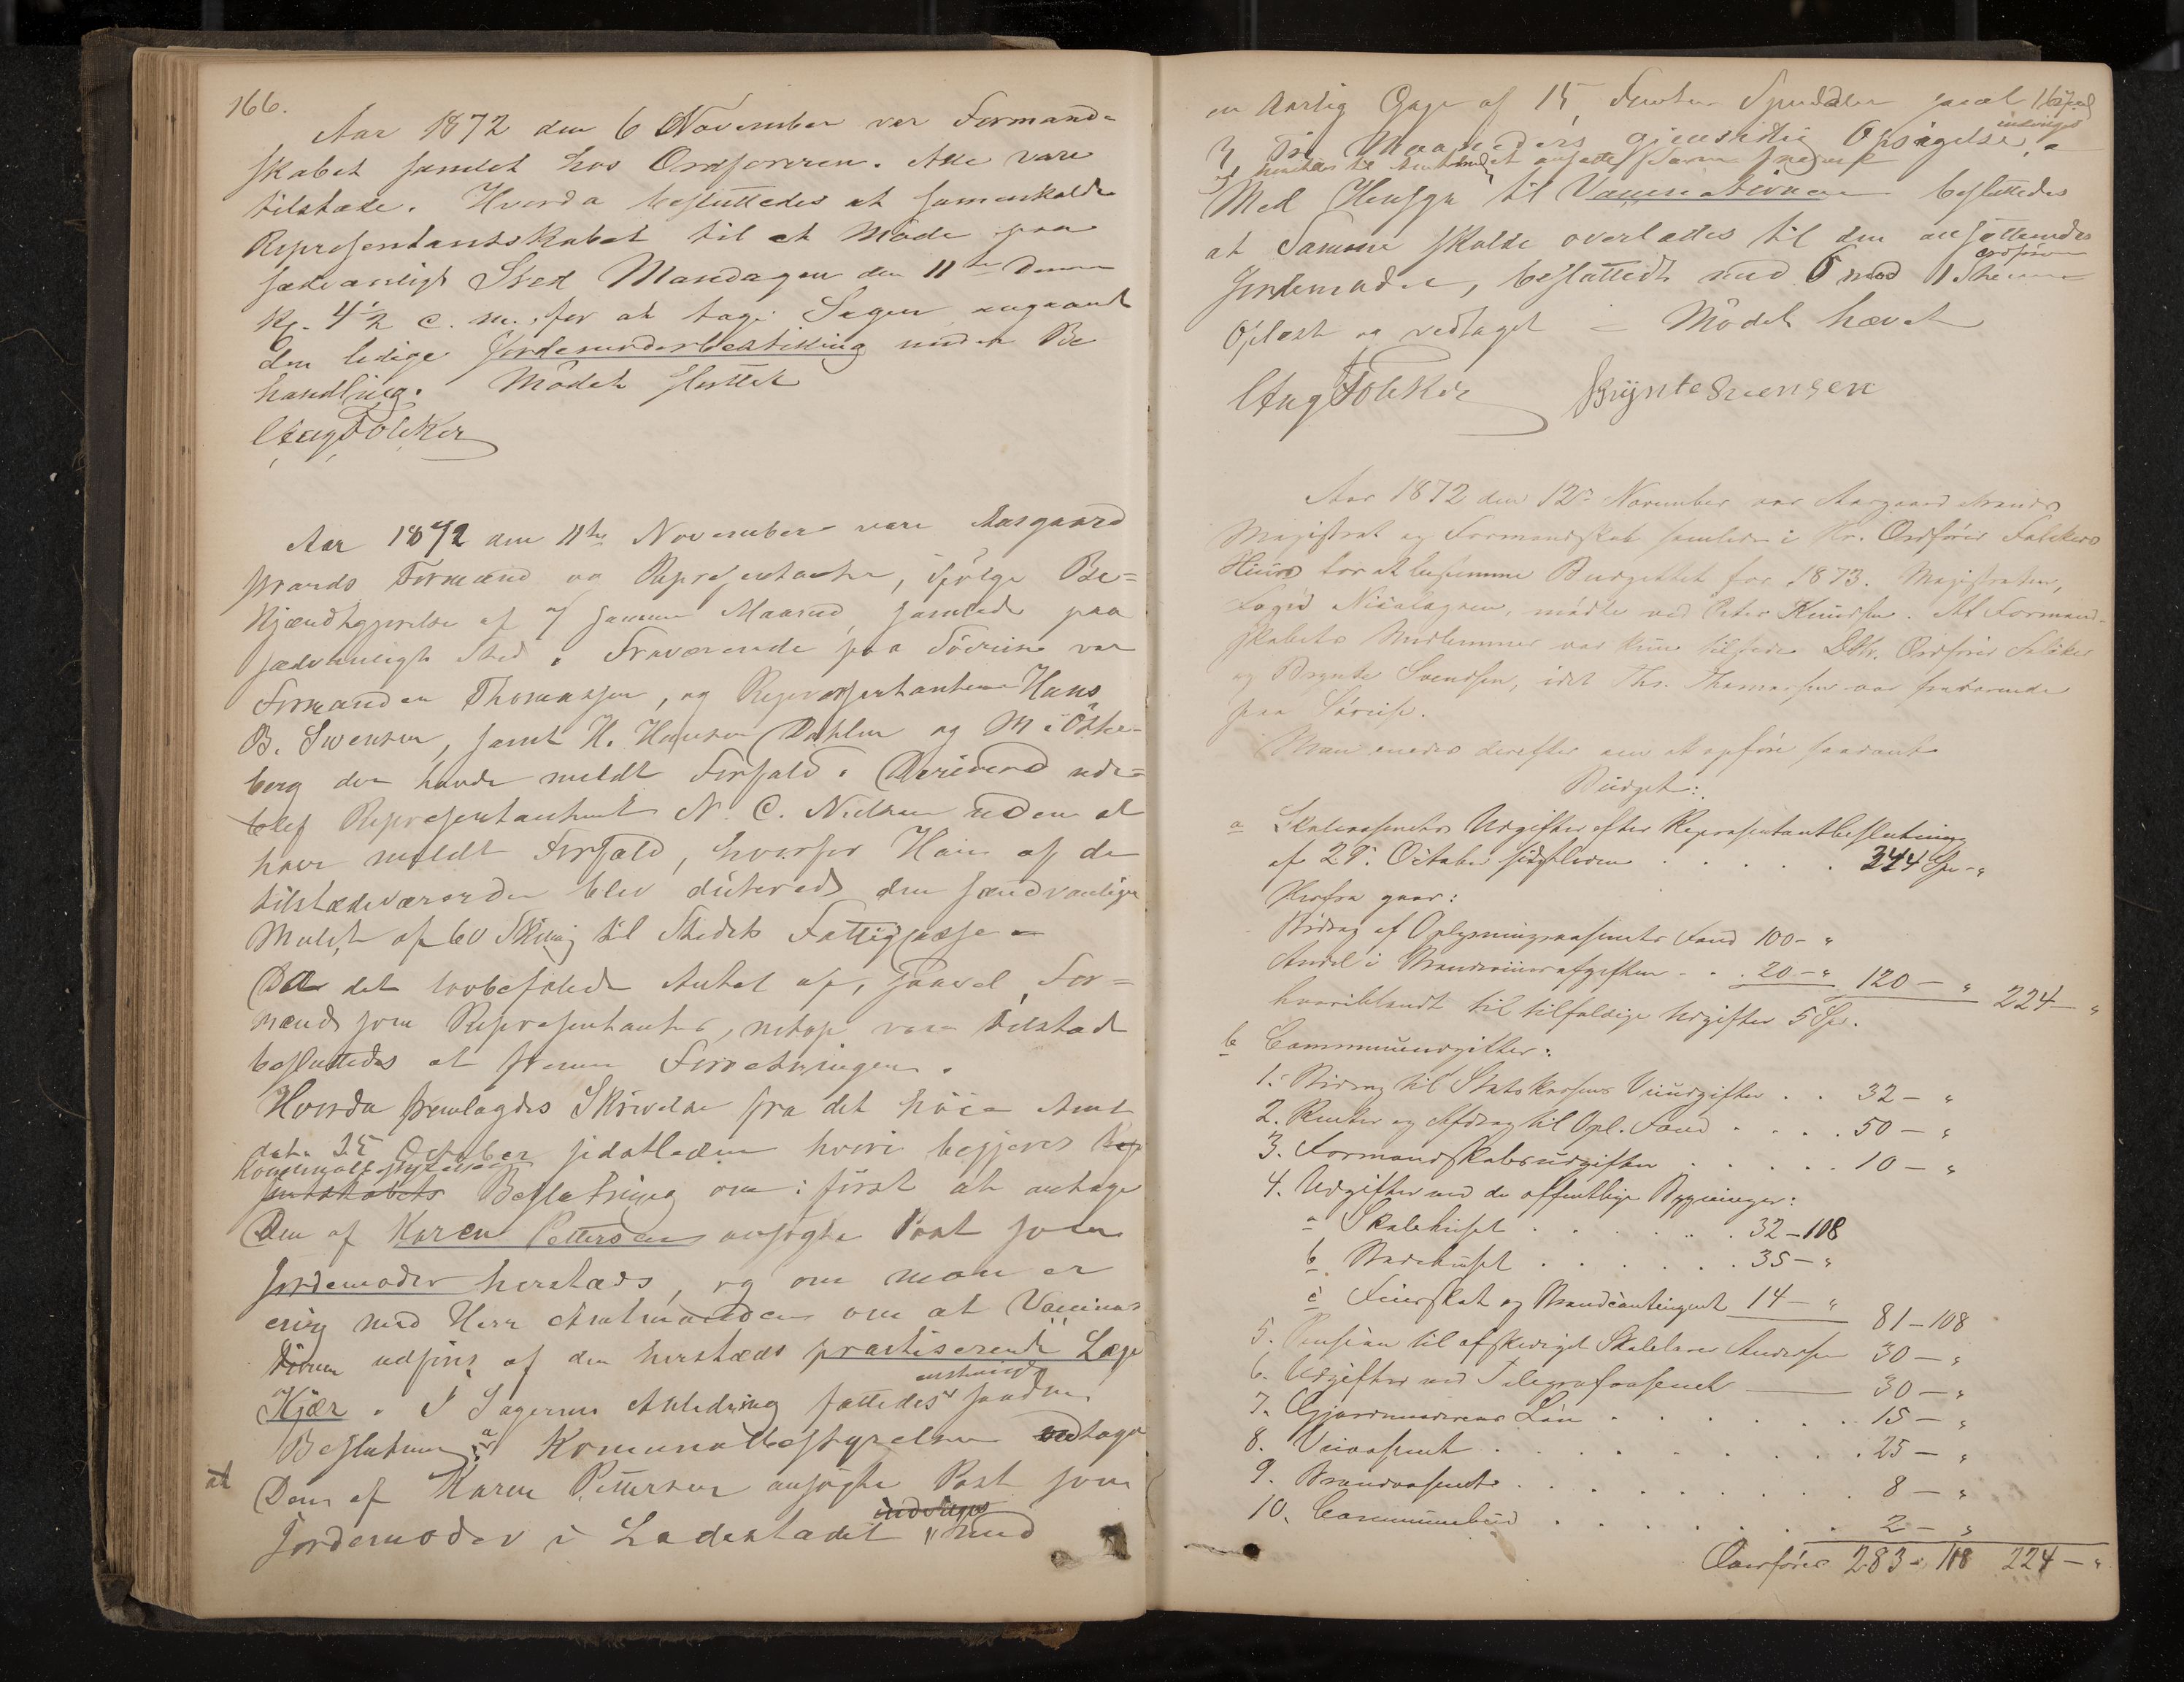 166.
Aar 1872 den 6 November var Formand=
skabet samlet hos Ordføreren. Alle vare
tilstæde. Hvorda besluttedes at samenkalde
Representantskabet til et Møde paa
sædvanligt Sted Mandagen den 11te Denne
Kl. 4 1/2 e. m. for at tage Sagen angaaend
den ledige Jordemoderbestilling under Be
handling. Mødet sluttet
CAugFolcker
Aar 1872 den 11te November vare Aasgaard
strands Formænd og Representanter, ifølge Be=
kjændtgjørelse af 7 samme Maaned, samlede paa
sædvanligt Sted. Fraværende paa Söreise var
Formanden Thomassen, og Representanterne Hans
B. Swensen, samt H. Hansen Dahlen og M
berg der havde meldt Forfald. Derimod ude=
blef Representanten N. C. Nielsen uden at
have meldt Forfald, hvorfor Han af de
tilstædeværende blev dicteret den sædvanlige
Mulct af 60 Skilling til Stedets Fattigkasse
Da det lovbefalede Antal af, saavel, For=
mænd som Representanter, netop vare tilstæde
besluttedes at fremme Forretningen.
Hvorda fremlagdes Skrivelse fra det høie Amt
dat. 25 October sidstleden hvori begjeres Rep
Komunalbestyrelsens
sentskabets Beslutning om: først at antage
Den af Karen Pettersen ansøgte Post som
Jordemoder herstæds, og om man er
enig med Herr Amtmanden om at Vaccinas
tionen udføres af den herstæds practiserende Læge
Kjær. I Sagens Anledning fattedes saadan
enstemmig
Beslutning: a Komunalbestyrelsen vedtager
at Den af Karen Pettersen ansøgte Post som
indvilges
Jordemoder i Ladestadet med
en Aarlig Gage af 15 Femten Spesidaler samt
indvilges
3 Tre Maaneders gjensidig Opsigelse.
Med Hensyn til Vaccinationen besluttedes
at Samme skulde overlattes til den ansættendes
Jordemoder, besluttedt med 5 mod 1 Stemme
ordføreren
Oplæst og vedtaget = Mødet hævet
CAugFolcker BrynteSvensen
Aar 1872 den 12te November var Aasgaardstrands
Magistrat og Formandskab samlede i Hr. Ordfører Folckers
Huus for at bestemme Budgettet for 1873. Magistraten,
Foged Nicolaysen, mødte ved Peter Knudsen. Af Formand-
skabets Medlemmer var kun tilstede DHr. Ordfører Folcker
og Brynte Svendsen, idet Ths. Thomassen var fraværende
paa Söreise.
Man enedes derefter om at opføre saadant
Budget:
a Skolevæsenets Udgifter efter Repræsentantbeslutning
af 29. October sidstleden . . . . . 344 Spd - "
Herfra gaar:
Bidrag af Oplysningsvæsenets Fond 100 - "
Andel i Brændeviinsafgiften . . 20 - " 120 - " 224 - "
hvoriblandt til tilfældige Udgifter 5 Spd.
b Communeudgifter:
1. Bidrag til Statskassens Veiudgifter . . 32 - "
2. Renter og Afdrag til Opl. Fond . . . . 50 - "
3. Formandskabsudgifter . . . . . . 10 - "
4. Udgifter ved de offentlige Bygninger:
a Skolehuset . . . . . . . 32 - 108
b Raadehuset . . . . . . 35 - "
c Feierskat og Brandcontingent 14 - " 81 - 108
5. Pension til afskediget Skolelærer Andersen 30 - "
6. Udgifter ved Telegrafvæsenet 30 - "
7. Gjordemoderens Løn . . . . . . . 15 - "
8. Veivæsenet . . . . . . . . . . 25 - "
9. Brandvæsenet . . . . . . . . . 8 - "
10. Communebud . . . . . . . 2 - "
Overføres 283 - 108 224 - "